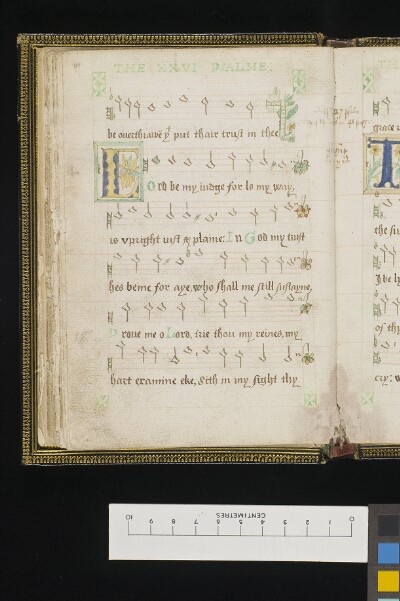 THE XXVI PSALME.
be overthrawē yͭ put thair trust in thee
LOrd be my iudge for lo my way,
is vpright iust & plaine: In God my trust
hes beine for aye, who shall me still sustayne,
Proue me o Lord, trie thou my reines, my
hart examine eke, Sith in my sight thy
TH
grace
I
of th
cry:
CENTIMETRES
10 9 8 7 6 5 4 3 2 1 0